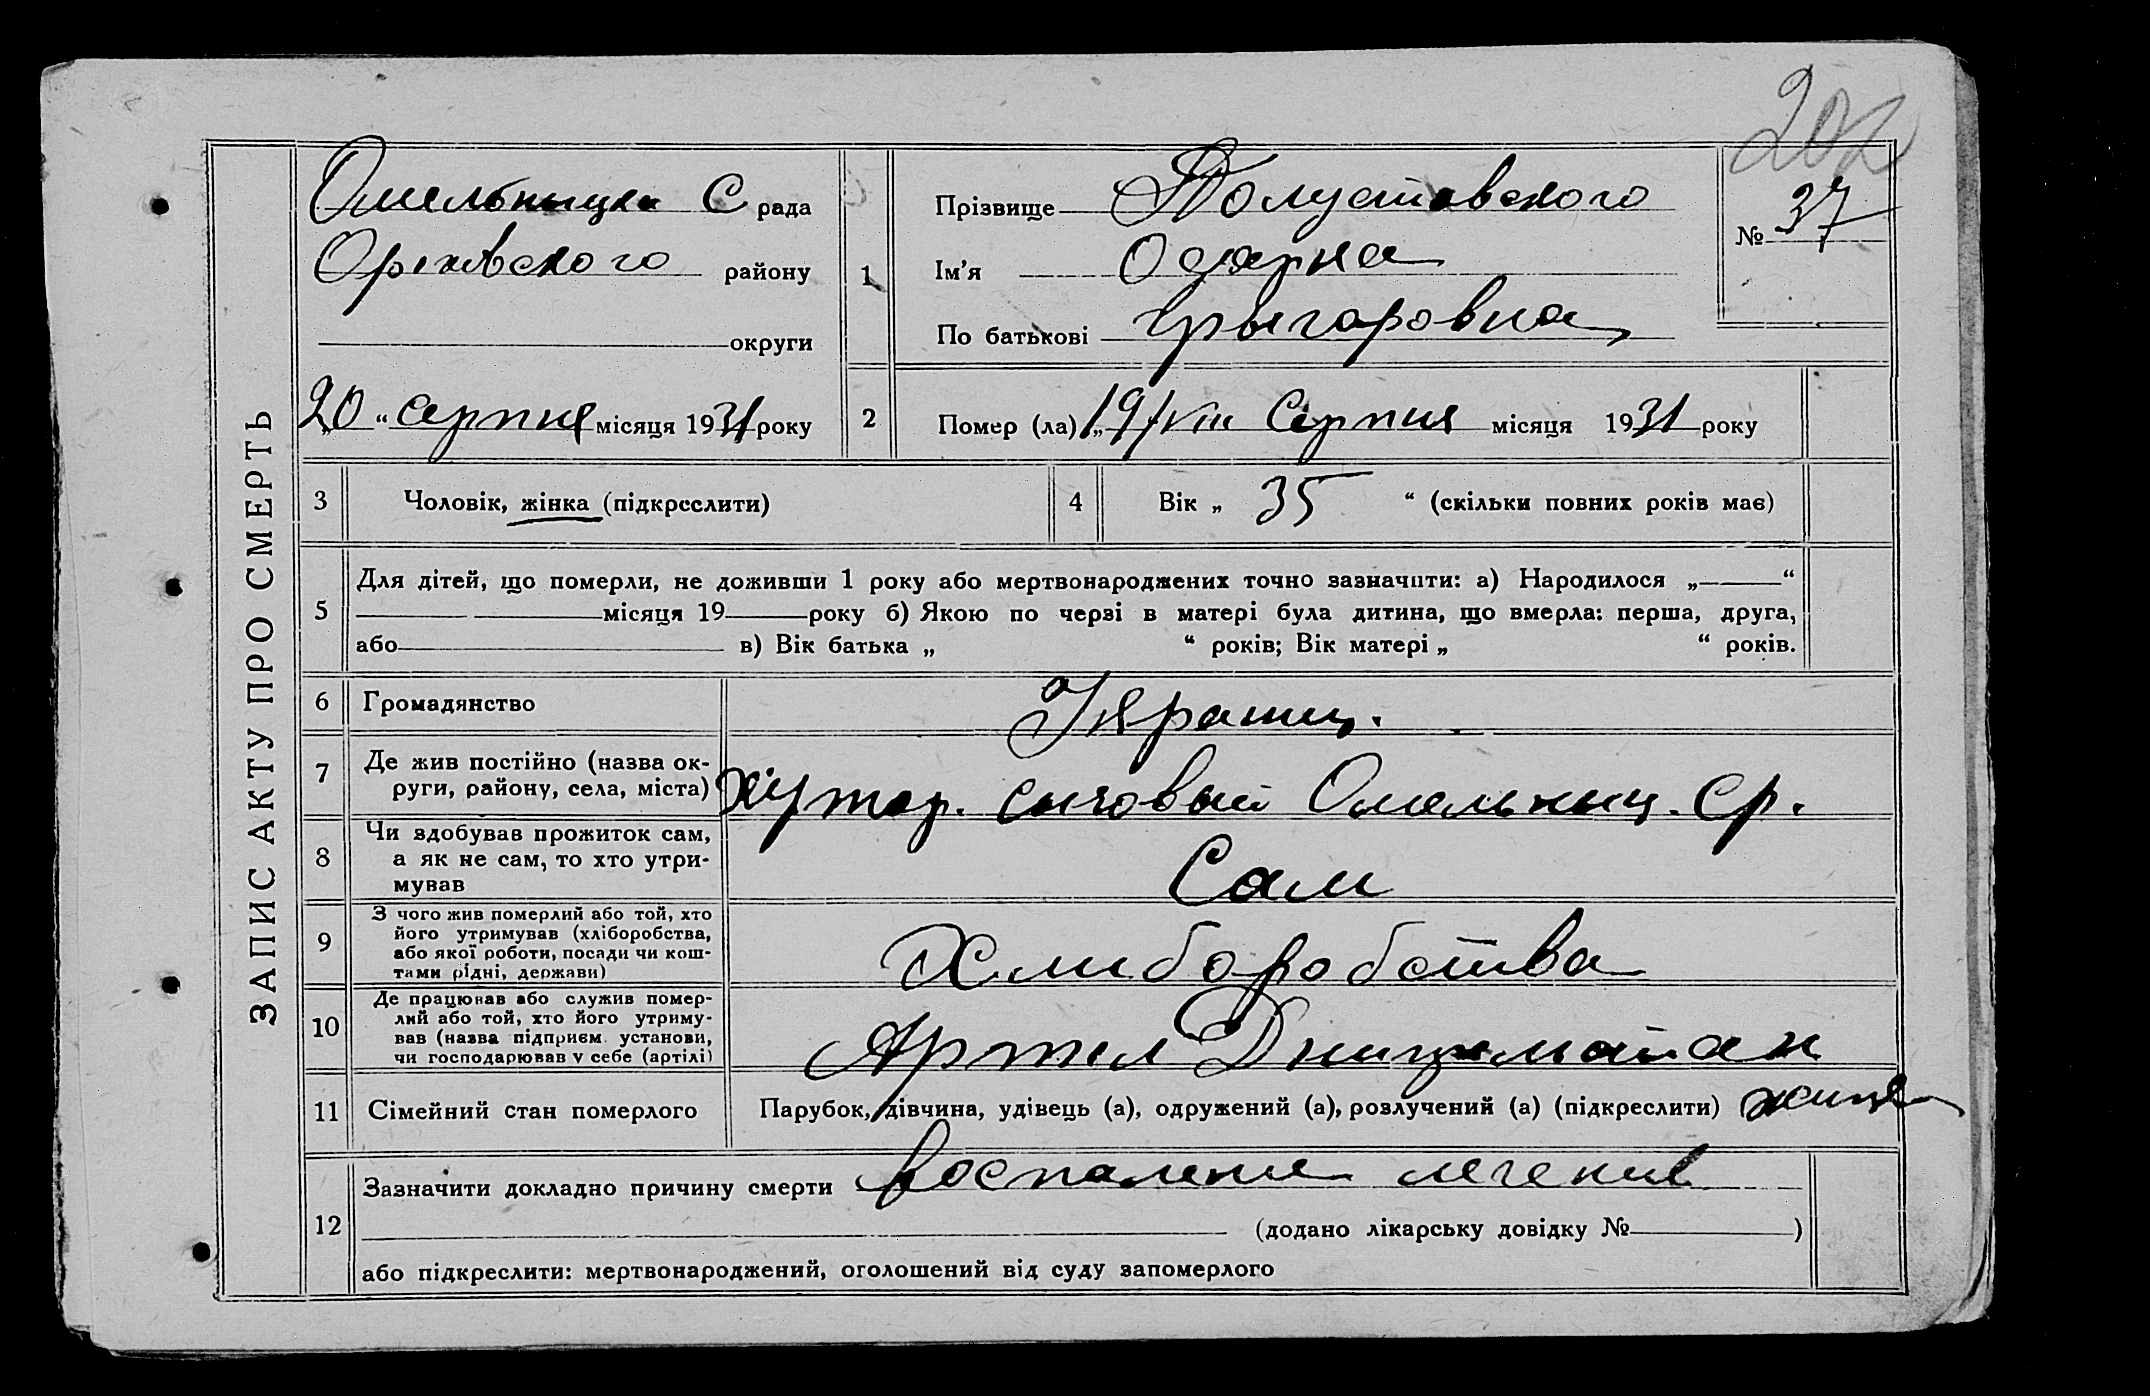 202
ЗАПИС АКТУ ПРО СМЕРТЬ
Омельницка С рада
Оріхівского району
округи
„20“ серпня місяця 1931 року
1
Прізвище Полустовского
Ім'я Одарна
По батькові Грыгоровна
№ 37
2 Помер (ла) „19/VIII Серпня місяця 1931 року
3 Чоловік, жінка (підкреслити)
4 Вік „ 35 “ (скільки повних років має)
5 Для дітей, що померли, не доживши 1 року або мертвонароджених точно зазначити: а) Народилося „ “
місяця 19 року б) Якою по черзі в матері була дитина, що вмерла: перша, друга,
або в) Вік батька „ “ років; Вік матері „ “ років.
6 Громадянство Украинц.
7 Де жив постійно (назва ок-
руги, району, села, міста) хутор. сычовый Омельныц. Ср.
8 Чи здобував прожиток сам,
а як не сам, то хто утри-
мував Сам
9 З чого жив померлий або той, хто
його утримував (хліборобства,
або якої роботи, посади чи кош-
тами рідні, держави) Хлиборобства
10 Де працював або служив помер-
лий або той, хто його утриму-
вав (назва підприєм. установи,
чи господарював у себе (артілі) Артел
11 Сімейний стан померлого Парубок, дівчина, удівець (а), одружений (а), розлучений (а) (підкреслити)
12 Зазначити докладно причину смерти воспаления легенив
(додано лікарську довідку № )
або підкреслити: мертвонароджений, оголошений від суду запомерлого